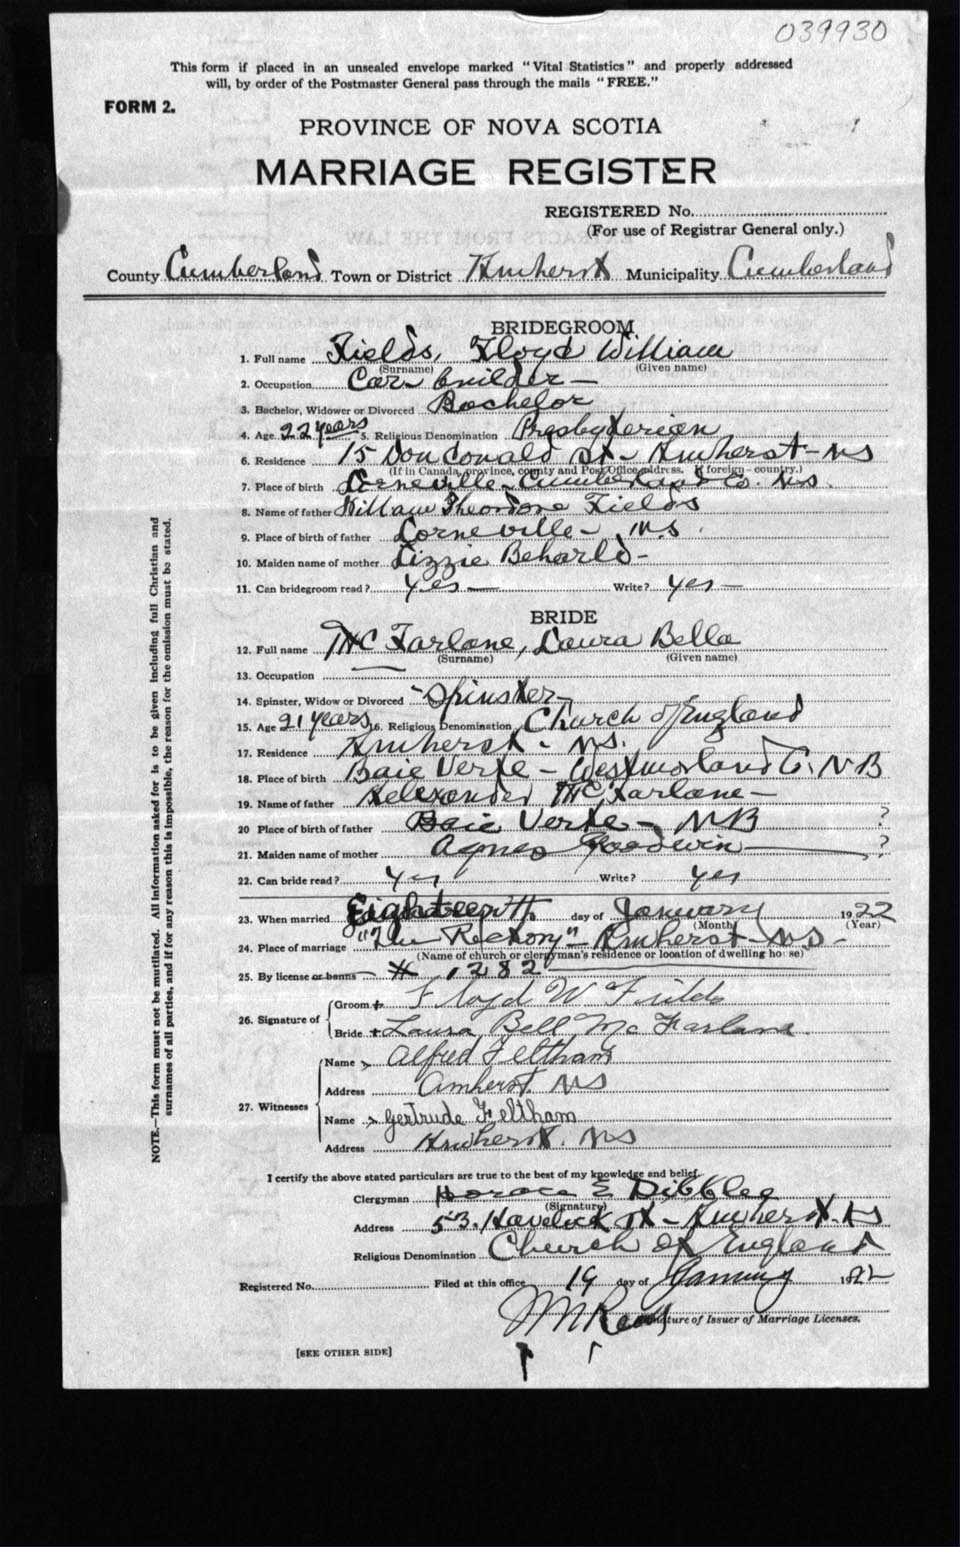 039930
This form if placed in an unsealed envelope marked "Vital Statistics" and properly addressed
will, by order of the Postmaster General pass through the mails "FREE."
FORM 2.
PROVINCE OF NOVA SCOTIA
MARRIAGE REGISTER
REGISTERED No.
(For use of Registrar General only.)
County Cumberland Town or District Amherst Municipality Cumberland
BRIDEGROOM
1. Full name Fields, Floyd William
(Surname) (Given name)
2. Occupation Car builder —
3. Bachelor, Widower or Divorced Bachelor
4. Age 22 years 5. Religious Denomination Presbyterian
6. Residence 15 Donald St - Amherst - NS
(If in Canada, province, county and Post Office address. If foreign - country.)
7. Place of birth Lorneville - Cumberland Co. N.S.
8. Name of father William Theodore Fields
9. Place of birth of father Lorneville - N.S.
10. Maiden name of mother Lizzie
11. Can bridegroom read? yes — Write? yes —
BRIDE
12. Full name McFarlane, Laura Bella
(Surname) (Given name)
13. Occupation —
14. Spinster, Widow or Divorced - Spinster -
15. Age 21 years 16. Religious Denomination Church of England
17. Residence Amherst - N.S.
18. Place of birth Baie Verte - Westmorland Co. NB
19. Name of father Alexander McFarlane -
20 Place of birth of father Baie Verte - NB ?
21. Maiden name of mother Agnes Goodwin — ?
22. Can bride read? yes Write? yes
23. When married Eighteenth day of January 1922
(Month) (Year)
24. Place of marriage "The Rectory" - Amherst - NS -
(Name of church or clergyman's residence or location of dwelling house)
25. By license or banns - # 1282
26. Signature of Groom Floyd W Fields
Bride Laura Bell McFarlane
27. Witnesses Name Alfred Feltham
Address Amherst NS
Name Gertrude Feltham
Address Amherst. NS
I certify the above stated particulars are true to the best of my knowledge and belief.
Clergyman Horace E Dibblee
(Signature)
Address 53. Havelock St - Amherst. NS
Religious Denomination Church of England
Registered No. Filed at this office 19 day of January 1922
Signature of Issuer of Marriage Licenses.
[SEE OTHER SIDE]
NOTE.—This form must not be mutilated. All information asked for is to be given including full Christian and
surnames of all parties, and if for any reason this is impossible, the reason for the omission must be stated.